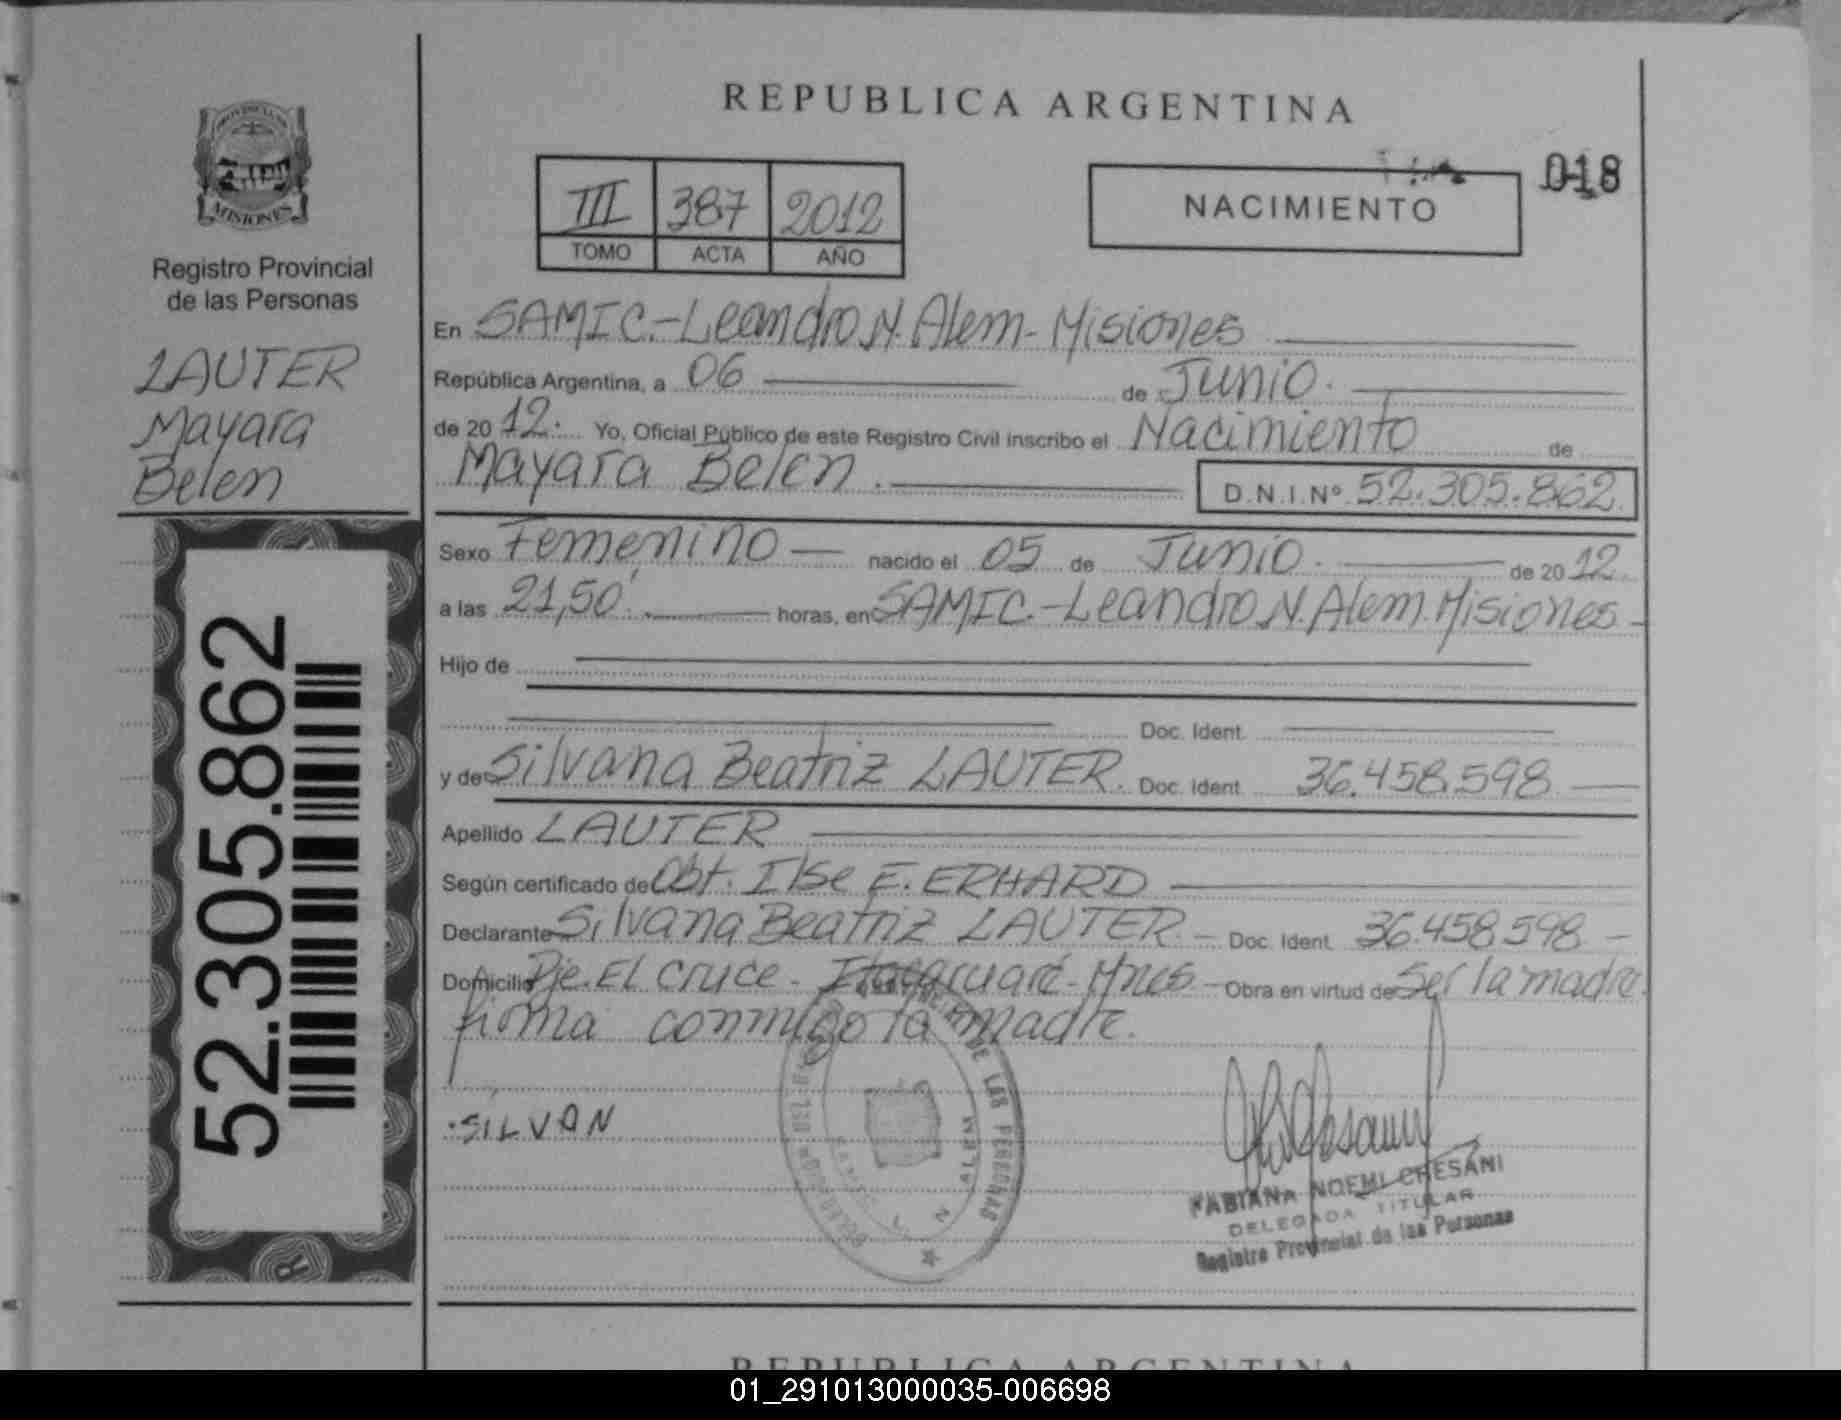 REPUBLICA ARGENTINA
PROVINCIA DE
MISIONES
Registro Provincial
de las Personas
LAUTER
Mayara
Belen
52.305.862
R
III 387 2012
TOMO ACTA AÑO
NACIMIENTO
018
En SAMIC.-Leandro N. Alem-Misiones
República Argentina, a 06 de Junio.
de 2012. Yo, Oficial Público de este Registro Civil inscribo el Nacimiento de
Mayara Belen. D.N.I.Nº 52.305.862.
Sexo Femenino nacido el 05 de Junio. de 2012.
a las 21,50'. horas, en SAMIC.-Leandro N. Alem.Misiones-
Hijo de
Doc. Ident.
y de Silvana Beatriz LAUTER. Doc. Ident. 36.458.598
Apellido LAUTER
Según certificado de Obt. Ilse E. ERHARD
Declarante Silvana Beatriz LAUTER.- Doc. Ident. 36.458.598-
Domicilio Pje. El Cruce - Itacaruaré-Mnes.- Obra en virtud de Ser la madre.
firma conmigo la madre.
SILVAN
DE LAS PERSONAS
N. ALEM
FABIANA NOEMI CHESANI
DELEGADA TITULAR
Registro Provincial de las Personas
REPUBLICA ARGENTINA
01_291013000035-006698